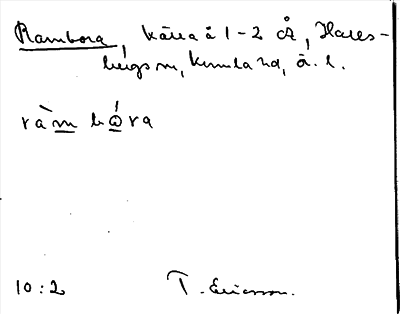 Rambora, källa å 1-2 Å, Hares-
bergs m, Kumla hd, ä. l.
ràm bǻra
10:2 T. Ericsson.